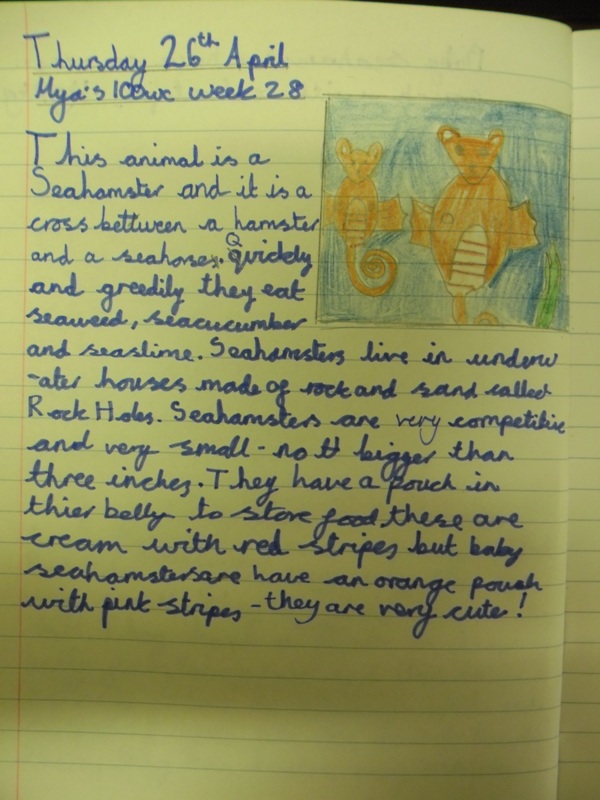 Thursday 26th April
Mya's 100wc week 28
This animal is a
Seahamster and it is a
cross bettween a hamster
and a seahorse. Quickly
and greedily they eat
seaweed, seacucumber
and seaslime. Seahamsters live in underw
-ater houses made of rock and sand called
Rock Holes. Seahamsters are very competitive
and very small - no bigger than
three inches. They have a pouch in
thier belly to store food these are
cream with red stripes but baby
seahamsters are have an orange pouch
with pink stripes - they are very cute!